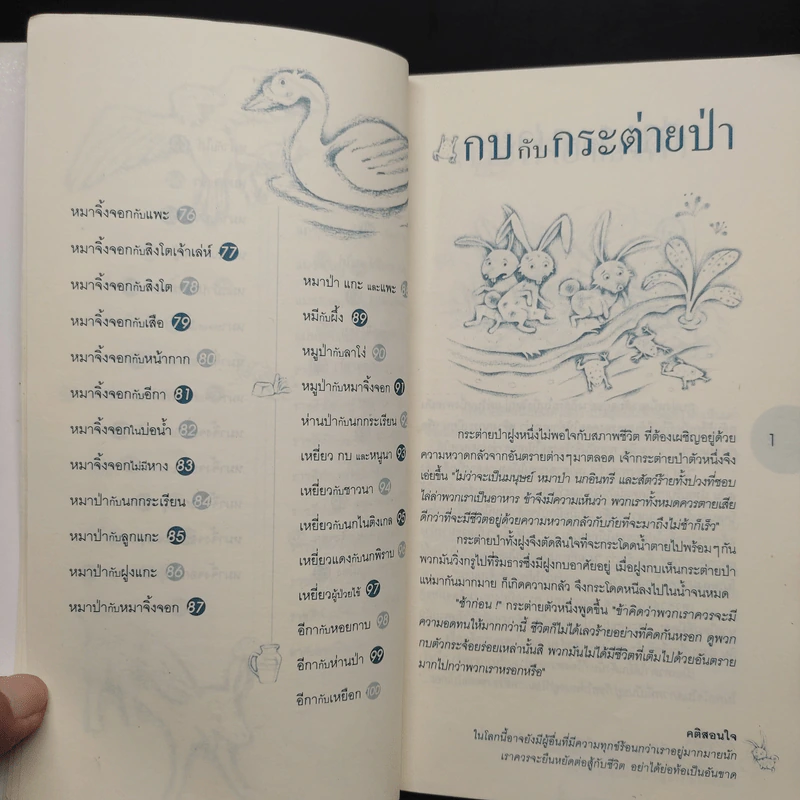 หมาจิ้งจอกกับแพะ 76
หมาจิ้งจอกกับสิงโตเจ้าเล่ห์ 77
หมาจิ้งจอกกับสิงโต 78
หมาจิ้งจอกกับเสือ 79
หมาจิ้งจอกกับหน้ากาก 80
หมาจิ้งจอกกับอีกา 81
หมาจิ้งจอกในบ่อน้ำ 82
หมาจิ้งจอกไม่มีหาง 83
หมาป่ากับนกกระเรียน 84
หมาป่ากับลูกแกะ 85
หมาป่ากับฝูงแกะ 86
หมาป่ากับหมาจิ้งจอก 87
หมาป่า แกะ และแพะ
หมีกับผึ้ง 89
หมูป่ากับลาโง่ 90
หมูป่ากับหมาจิ้งจอก 91
ห่านป่ากับนกกระเรียน
เหยี่ยว กบ และหนูนา 93
เหยี่ยวกับชาวนา 94
เหยี่ยวกับนกไนติงเกล 95
เหยี่ยวแดงกับนกพิราบ
เหยี่ยวผู้ป่วยไข้ 97
อีกากับหอยกาบ 98
อีกากับห่านป่า 99
อีกากับเหยือก 100
กบกับกระต่ายป่า
กระต่ายป่าฝูงหนึ่งไม่พอใจกับสภาพชีวิต ที่ต้องเผชิญอยู่ด้วย
ความหวาดกลัวจากอันตรายต่างๆมาตลอด เจ้ากระต่ายป่าตัวหนึ่งจึง
เอ่ยขึ้น "ไม่ว่าจะเป็นมนุษย์ หมาป่า นกอินทรี และสัตว์ร้ายทั้งปวงที่ชอบ
ไล่ล่าพวกเราเป็นอาหาร ข้าจึงมีความเห็นว่า พวกเราทั้งหมดควรตายเสีย
ดีกว่าที่จะมีชีวิตอยู่ด้วยความหวาดกลัวกับภัยที่จะมาถึงไม่ช้าก็เร็ว"
กระต่ายป่าทั้งฝูงจึงตัดสินใจที่จะกระโดดน้ำตายไปพร้อมๆกัน
พวกมันวิ่งกรูไปที่ริมธารซึ่งมีฝูงกบอาศัยอยู่ เมื่อฝูงกบเห็นกระต่ายป่า
แห่มากันมากมาย ก็เกิดความกลัว จึงกระโดดหนีลงไปในน้ำจนหมด
"ช้าก่อน !" กระต่ายตัวหนึ่งพูดขึ้น "ข้าคิดว่าพวกเราควรจะมี
ความอดทนให้มากกว่านี้ ชีวิตก็ไม่ได้เลวร้ายอย่างที่คิดกันหรอก ดูพวก
กบตัวกระจ้อยร่อยเหล่านั้นสิ พวกมันไม่ได้มีชีวิตที่เต็มไปด้วยอันตราย
มากไปกว่าพวกเราหรอกหรือ"
1
คติสอนใจ
ในโลกนี้อาจยังมีผู้อื่นที่มีความทุกข์ร้อนกว่าเราอยู่มากมายนัก
เราควรจะยืนหยัดต่อสู้กับชีวิต อย่าได้ย่อท้อเป็นอันขาด